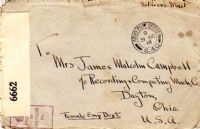 Soldiers Mail
To
Mrs James Malcolm Campbell
Recording & Computing Machs Co
Dayton,
Ohio
U.S.A.
Female Emp Dept
6662